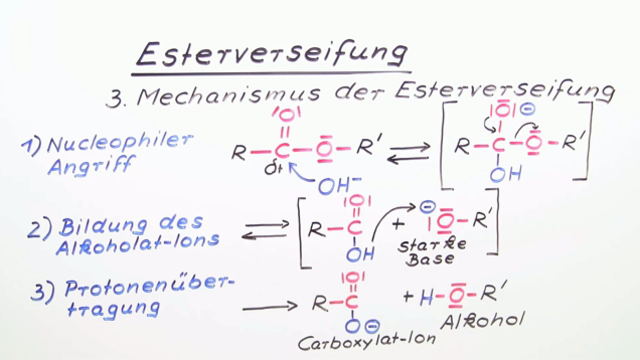 Esterverseifung
3. Mechanismus der Esterverseifung
1) Nucleophiler
Angriff
R–C–O–R' ⇌ [R–C–O–R']
O
δ+
OH⁻
O ⊖
OH
2) Bildung des
Alkoholat-Ions
⇌ [R–C + ⊖ O–R']
O
OH
starke
Base
3) Protonenüber-
tragung
→ R–C + H–O–R'
O
O ⊖
Carboxylat-Ion
Alkohol